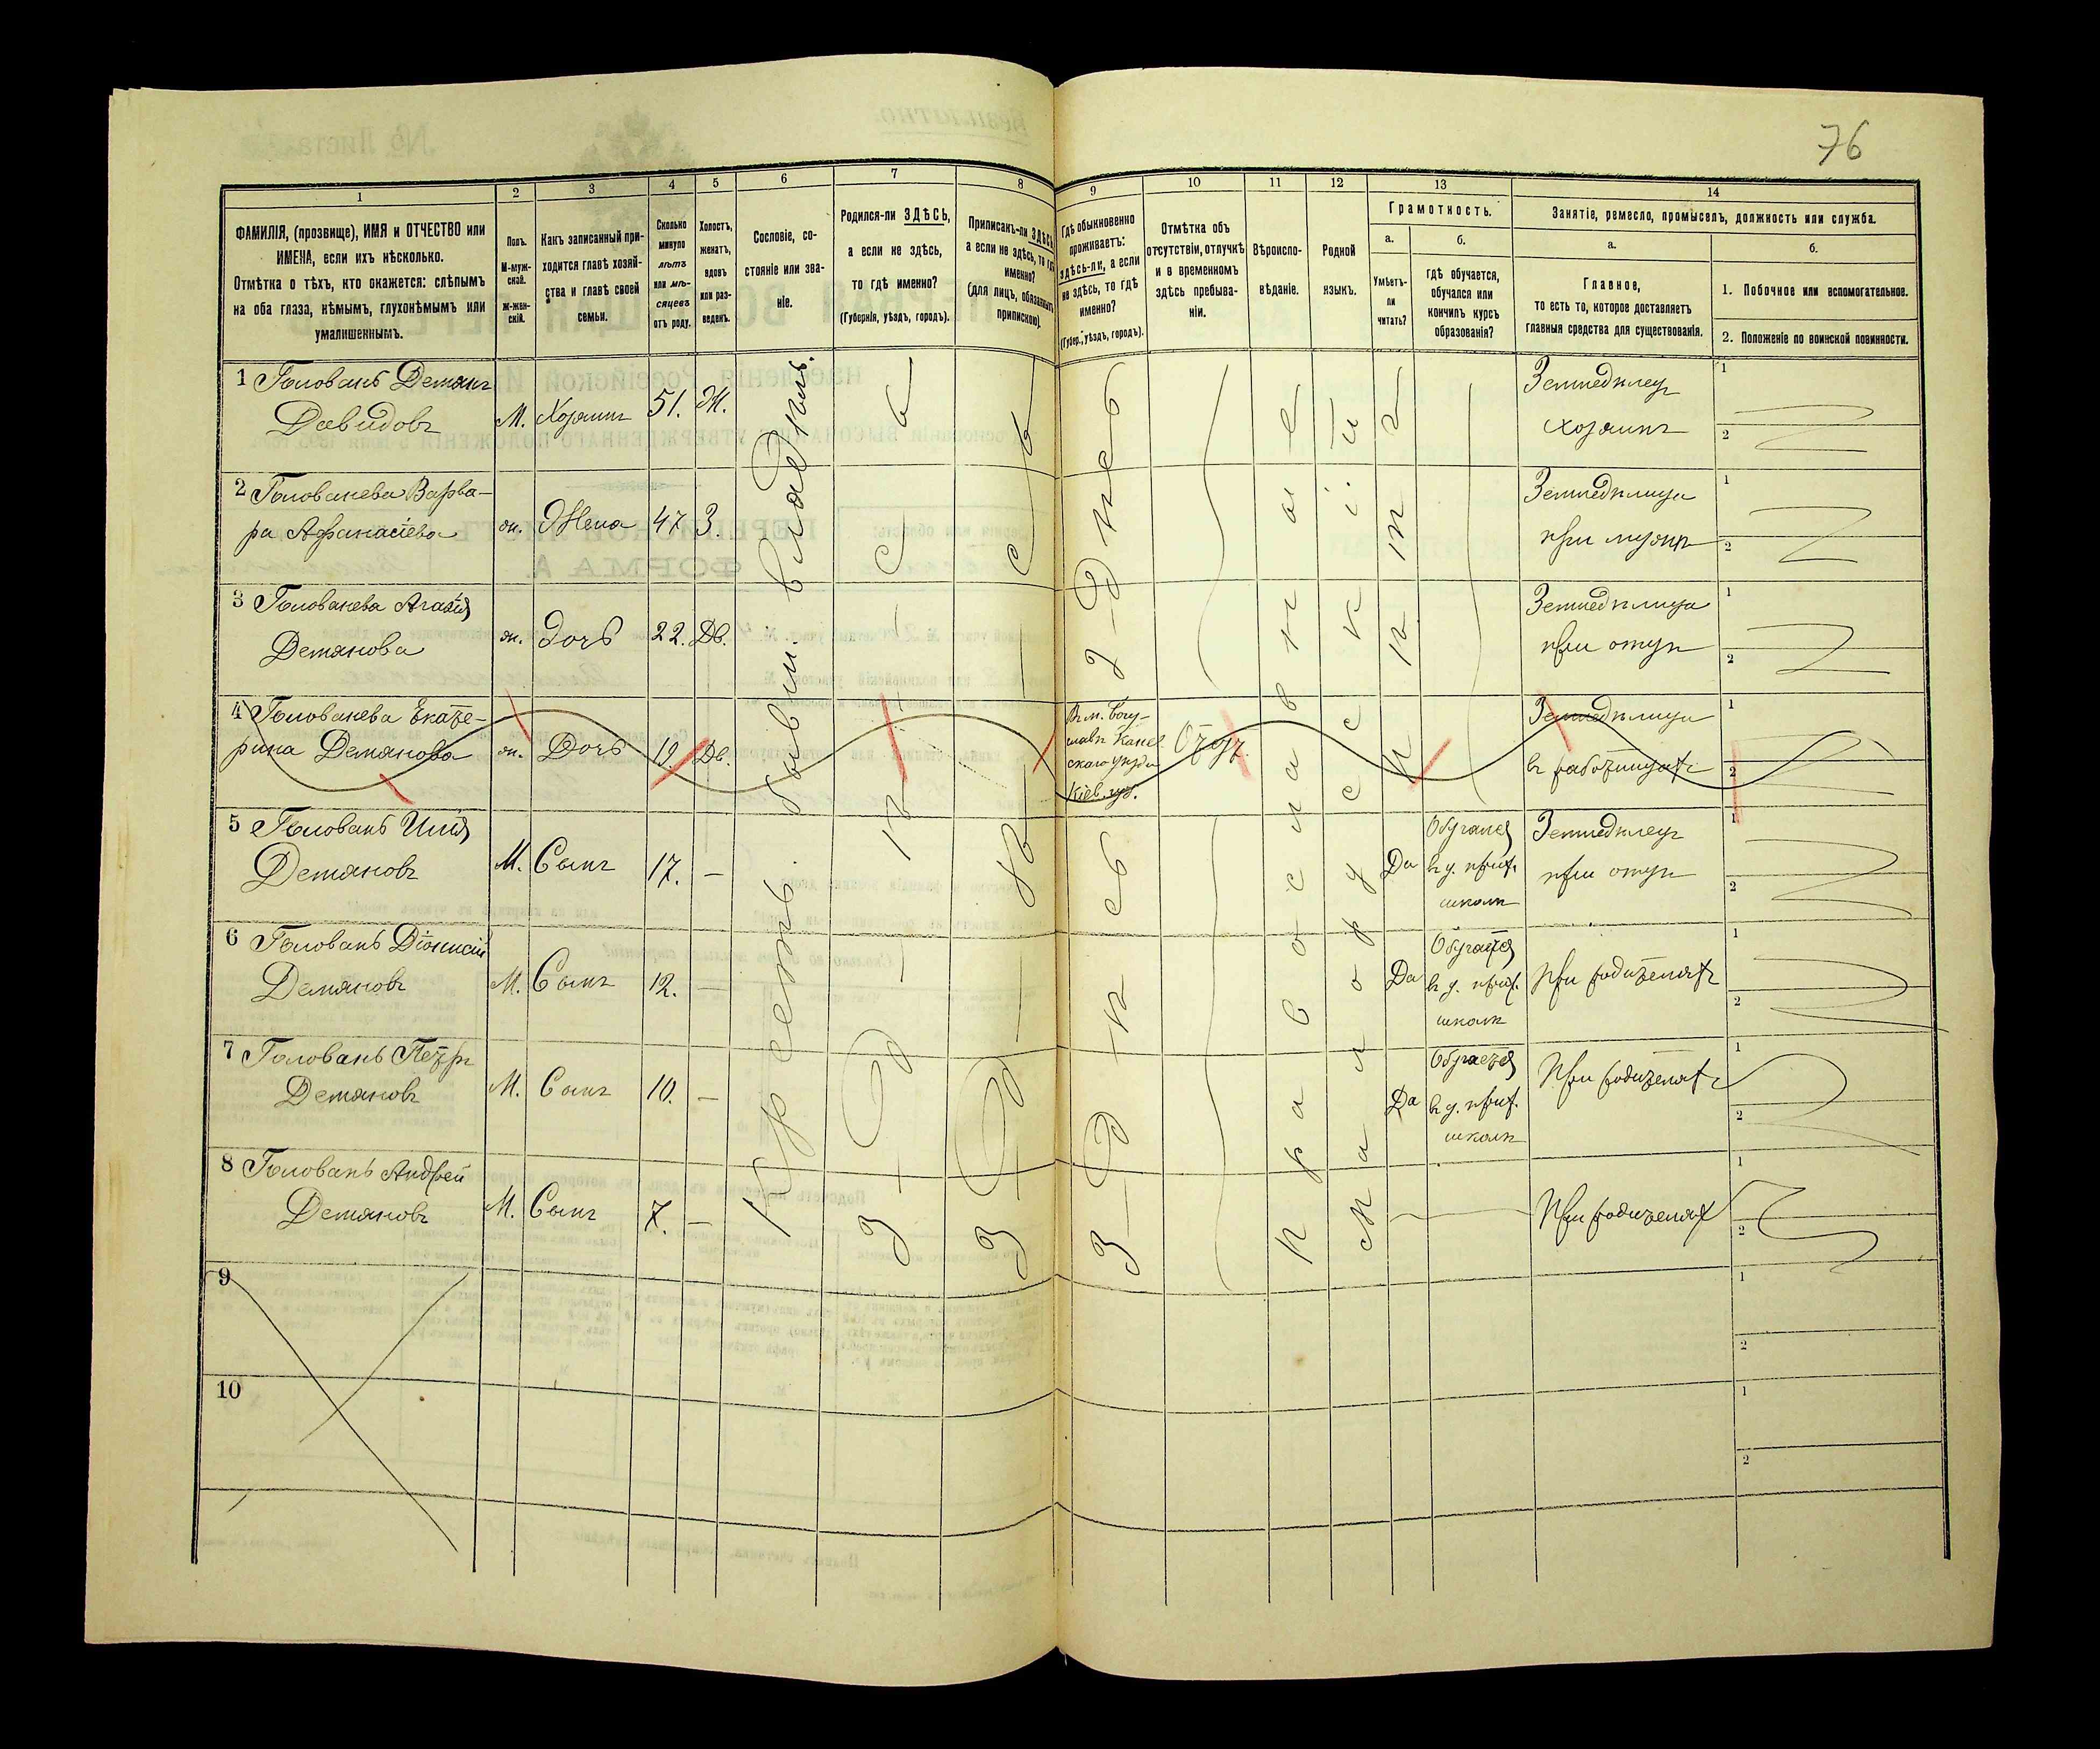 76
1
2
3
4
5
6
7
8
9
10
11
12
13
14
ФАМИЛІЯ, (прозвище), ИМЯ и ОТЧЕСТВО или
ИМЕНА, если ихъ нѣсколько.
Отмѣтка о тѣхъ, кто окажется: слѣпымъ
на оба глаза, нѣмымъ, глухонѣмымъ или
умалишеннымъ.
Полъ.
М-муж-
ской.
Ж-жен-
скій.
Какъ записанный при-
ходится главѣ хозяй-
ства и главѣ своей
семьи.
Сколько
минуло
лѣтъ
или мѣ-
сяцевъ
отъ роду.
Холостъ,
женатъ,
вдовъ
или раз-
веденъ.
Сословіе, со-
стояніе или зва-
ніе.
Родился-ли ЗДѢСЬ,
а если не здѣсь,
то гдѣ именно?
(Губернія, уѣздъ, городъ).
Приписанъ-ли ЗДѢСЬ,
а если не здѣсь, то гдѣ
именно?
(для лицъ, обязанныхъ
припискою).
Гдѣ обыкновенно
проживаетъ:
здѣсь-ли, а если
не здѣсь, то гдѣ
именно?
(Губер., уѣздъ, городъ).
Отмѣтка объ
отсутствіи, отлучкѣ
и о временномъ
здѣсь пребыва-
ніи.
Вѣроиспо-
вѣданіе.
Родной
языкъ.
Грамотность.
а.
Умѣетъ-
ли
читать?
б.
гдѣ обучается,
обучался или
кончилъ курсъ
образованія?
Занятіе, ремесло, промыселъ, должность или служба.
а.
Главное,
то есть то, которое доставляетъ
главныя средства для существованія.
б.
1. Побочное или вспомогательное.
2. Положеніе по воинской повинности.
1 Головань Демянъ
Давидовъ
М. Хозяинъ 51. Ж.
Земледѣлец
хозяинъ
1
2
2 Голованева Варва-
ра Афанасіева
ж. Жена 47 З.
Земледѣлица
при мужѣ
1
2
3 Голованева Агафія
Демянова
ж. Дочь 22. Дв.
Земледѣлица
при отцѣ
1
2
4 Голованева Екате-
рина Демянова
ж. Дочь 19. Дв.
Въ м. Богу-
славѣ Канев-
скаго уѣзда
Кіев. губ.
Земледѣлица
въ работницахъ
1
2
5 Головань Илія
Демяновъ
М. Сынъ 17. —
Да
школѣ
Земледѣлец
при отцѣ
1
2
6 Головань Діонисій
Демяновъ
М. Сынъ 12. —
Да
Обучается
въ ц. прих.
школѣ
При родителяхъ
1
2
7 Головань Петръ
Демяновъ
М. Сынъ 10. —
Да
Обучается
въ ц. прих.
школѣ
При родителяхъ
1
2
8 Головань Андрей
Демяновъ
М. Сынъ 7. —
При родителях
1
2
Крестъ. бывш. владѣль.
З-Д-Ѣ-С-Ь
З-Д-Ѣ-С-Ь
З-Д-Ѣ-сь
З-Д-ѣсь
Православное
Малорусскій
нѣтъ
9
1
2
10
1
2